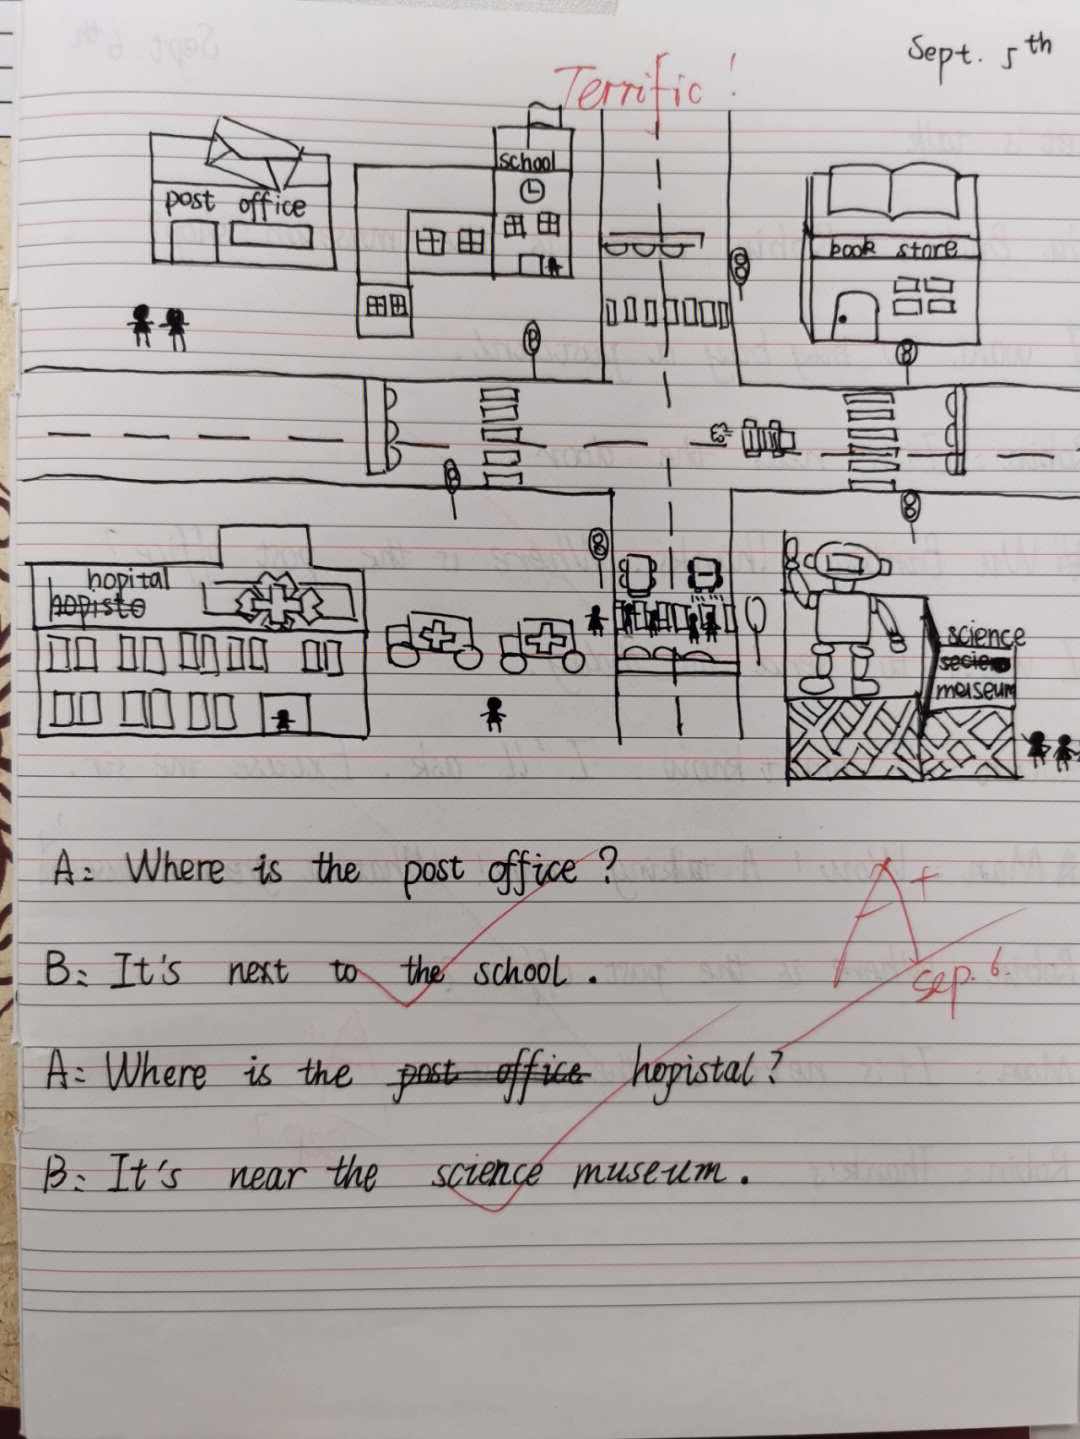 Sept. 5th
Terrific!
school
post office
book store
hopital
hopisto
science
secie
meiseum
A: Where is the post office?
A+
B: It's next to the school.
Sep. 6.
A: Where is the post office hopistal?
B: It's near the science museum.